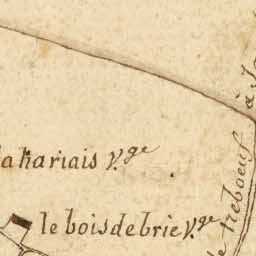 lahariais v.ge
le bois de brie v.ge
de treboeuf
à